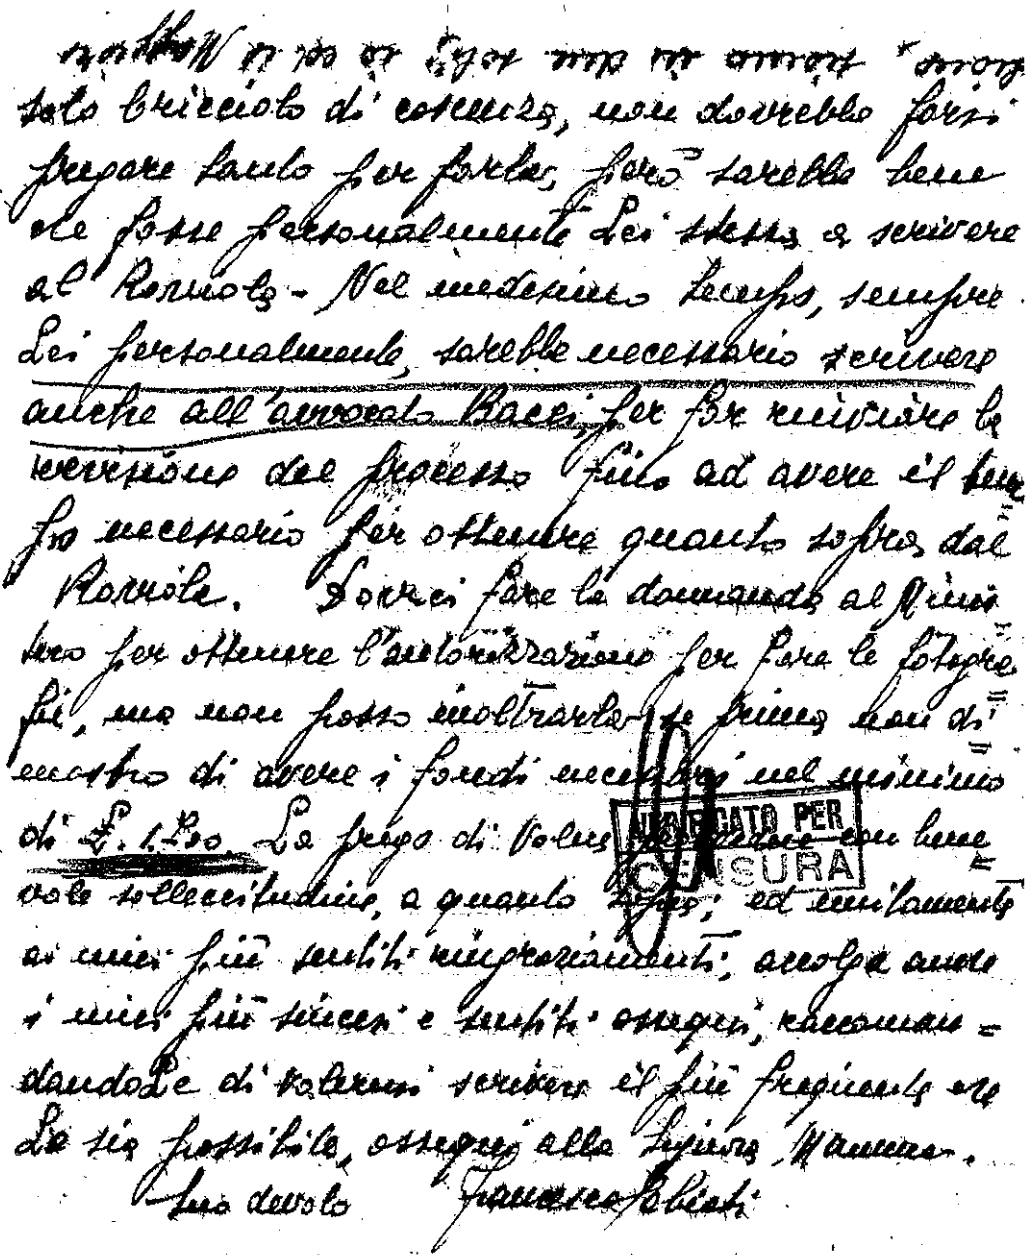 solo bricciolo di coscienza, non dovrebbe farsi
pregare tanto per farlo, però sarebbe bene
che fosse personalmente Lei stessa a scrivere
al Rorriola - Nel medesimo tempo, sempre
Lei personalmente, sarebbe necessario scrivere
anche all'avvocato Bacci, per far rinviare la
revisione del processo fino ad avere il tem
po necessario per ottenere quanto sopra dal
Dovrei fare la domanda al Minis
tero per ottenere l'autorizzazione per fare le fotogra
fie, ma non posso inoltrarla se prima non di
mostro di avere i fondi necessari nel minimo
di La prego di volermi con bene
VERIFICATO PER
CENSURA
vole sollecitudine, a quanto sopra; ed unitamente
ai miei più sentiti ringraziamenti, accolga anche
i miei più sinceri e sentiti ossequi, raccoman =
dandoLe di volermi scrivere il più frequente che
Le sia possibile, ossequi alla Signora Mamma.
Suo devoto Francesco